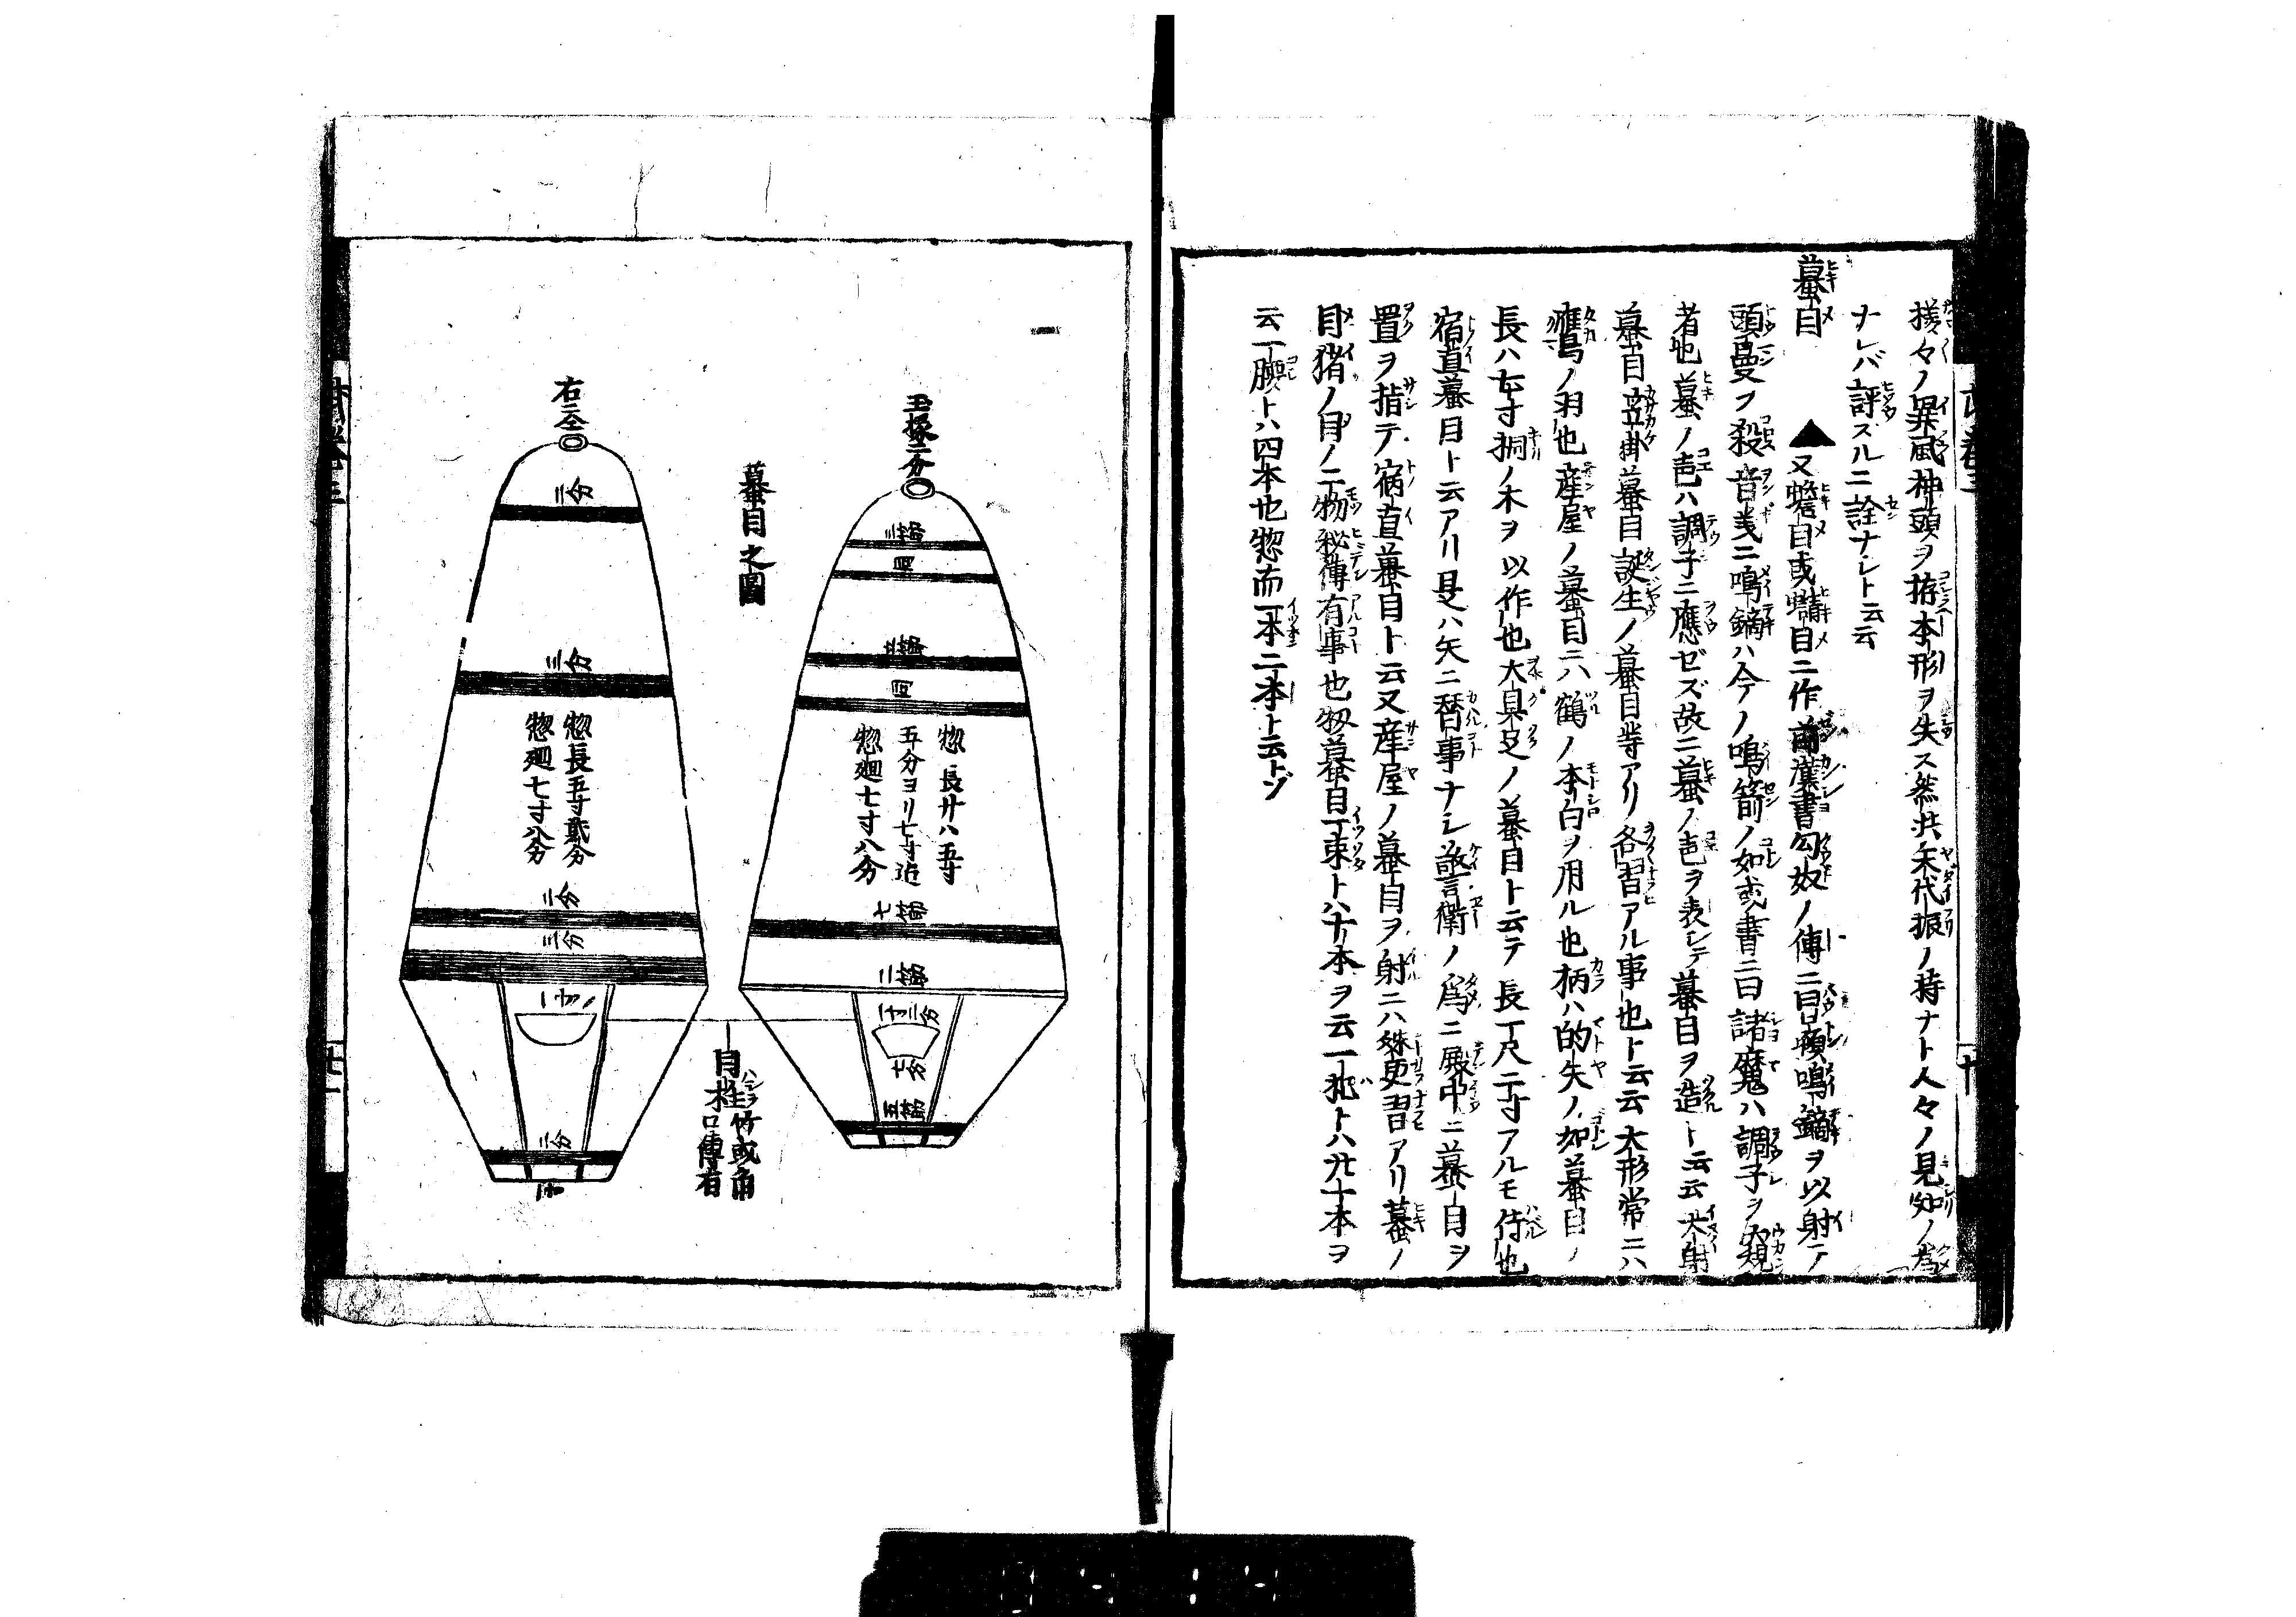 様々ノ異風神頭ヲ拵本形ヲ失ス然共矢代振ノ持ナト人々ノ見知ノ為
ナレバ評スルニ詮ナシト云云
蟇目
▲又蟾目或蠩目ニ作前漢書匈奴ノ傳ニ曰冒頓鳴鏑ヲ以射テ
頭曼ヲ殺音義ニ鳴鏑ハ今ノ鳴箭ノ如或書ニ曰諸魔ハ調子ヲ窺
者也蟇ノ声ハ調子ニ應ゼズ故ニ蟇ノ声ヲ表シテ蟇目ヲ造ト云云犬射
蟇目笠掛蟇目誕生ノ蟇目等アリ各習アル事也ト云云大形常ニハ
鷹ノ羽也産屋ノ蟇目ニハ鶴ノ本白ヲ用ル也柄ハ的矢ノ如蟇目ノ
長ハ七寸桐ノ木ヲ以作也大具足ノ蟇目ト云テ長一尺二寸アルモ侍也
宿直蟇目ト云アリ是ハ矢ニ替事ナシ警衛ノ為ニ殿中ニ蟇目ヲ
置ヲ指テ宿直蟇目ト云又産屋ノ蟇目ヲ射ニハ殊更習アリ蟇ノ
目猪ノ目ノ二物秘傳有事也扨蟇目一束ト八十本ヲ云一把ト八廿十本ヲ
云一腰トハ四本也惣而一本二本ト云トゾ
蟇目之圖
二筋
四
四
惣長サハ五寸
五分ヨリ七寸迄
惣廻七寸八分
七筋
二筋
一寸二分
七分
五筋
目柱竹或角
口傳有
右仝
二分
三分
惣長五寸貳分
惣廻七寸八分
二分
三分
二分